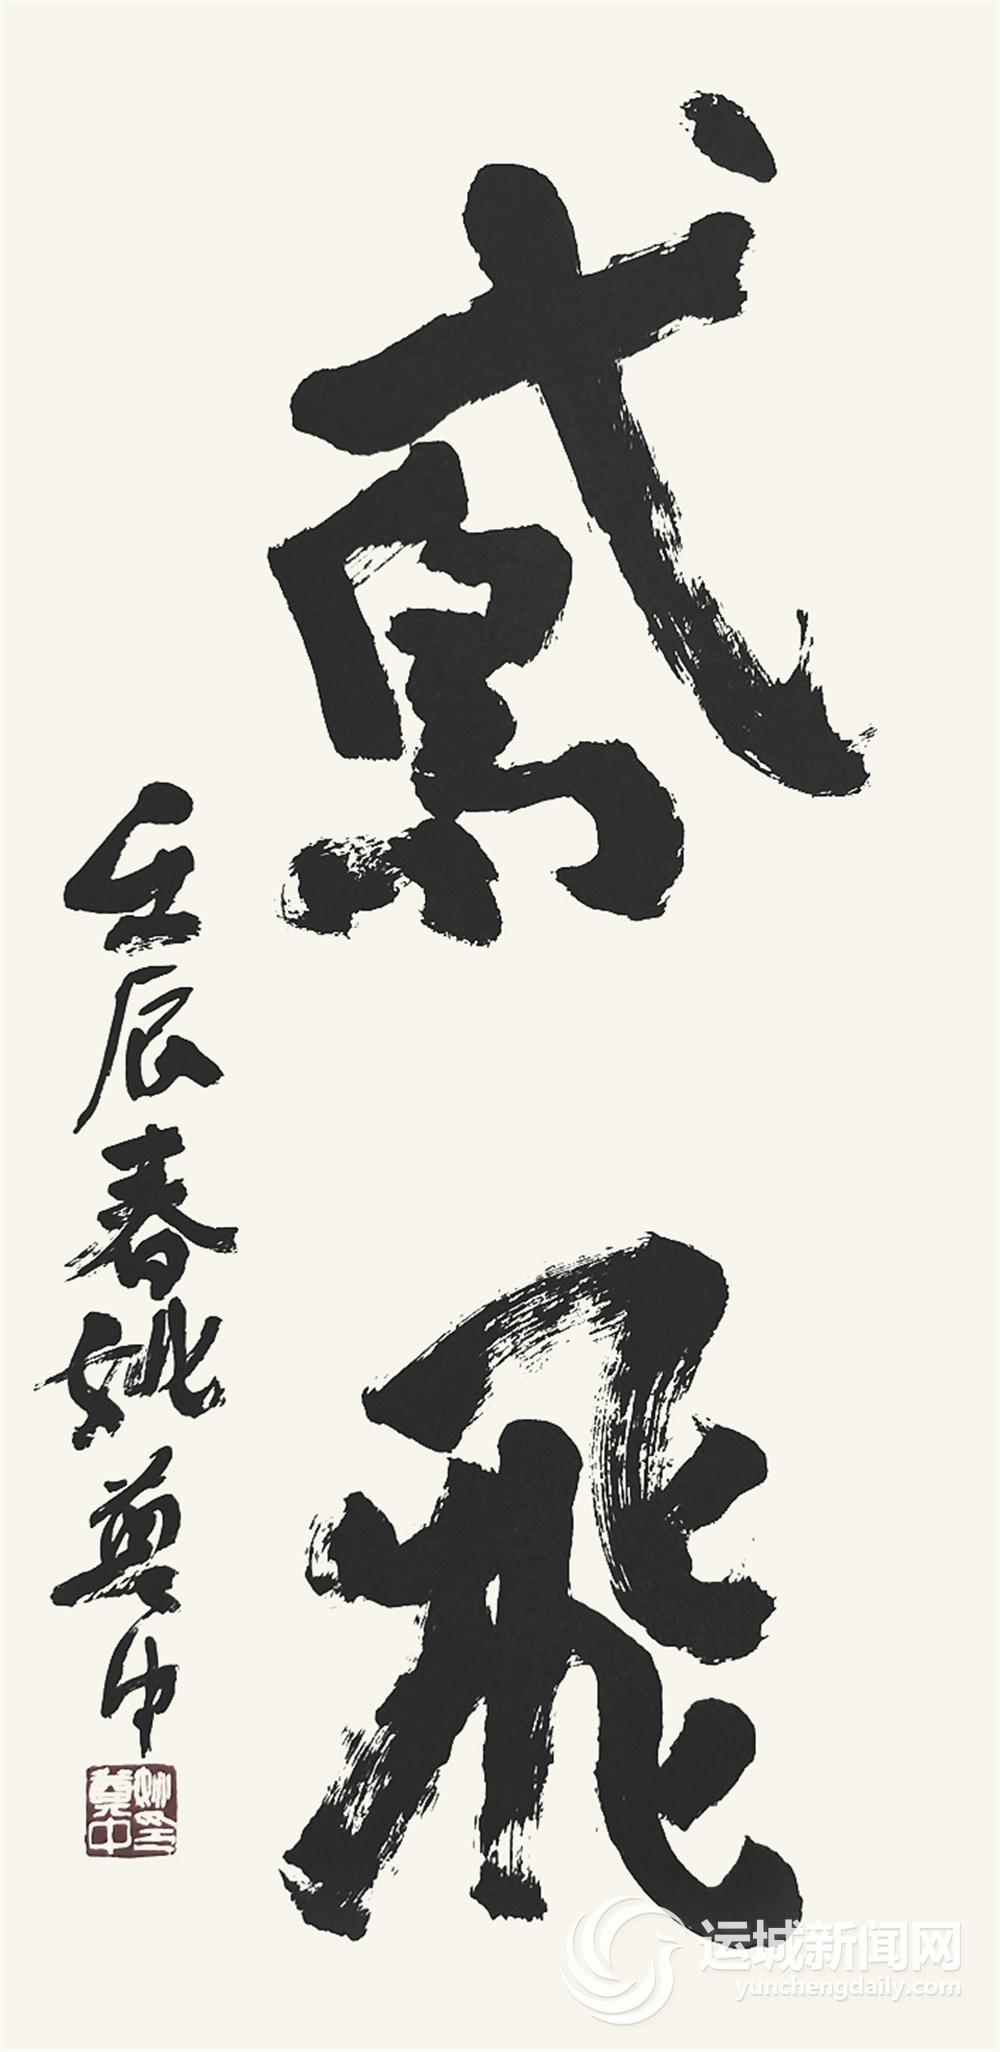 鸢飞
壬辰春姚奠中
姚奠中印
运城新闻网
yunchengdaily.com